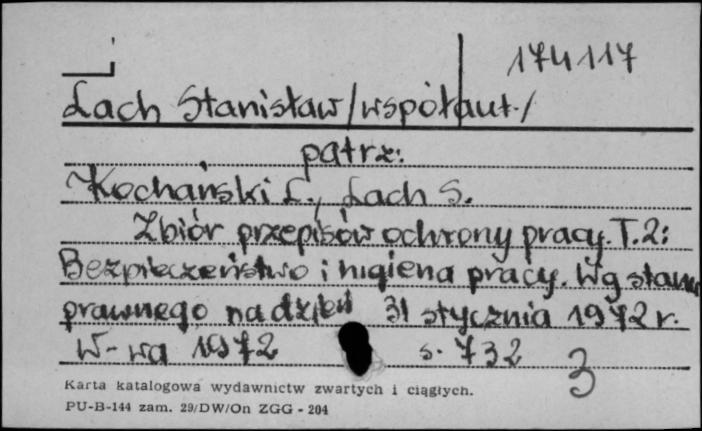 174117
Lach Stanisław /współaut./
patrz:
Kochański L., Lach S.
Zbiór przepisów ochrony pracy. T.2:
Bezpieczeństwo i higiena pracy. Wg stanu
prawnego na dzień 31 stycznia 1972 r.
W-wa 1972 s. 732
3
Karta katalogowa wydawnictw zwartych i ciągłych.
PU-B-144 zam. 29/DW/On ZGG - 204